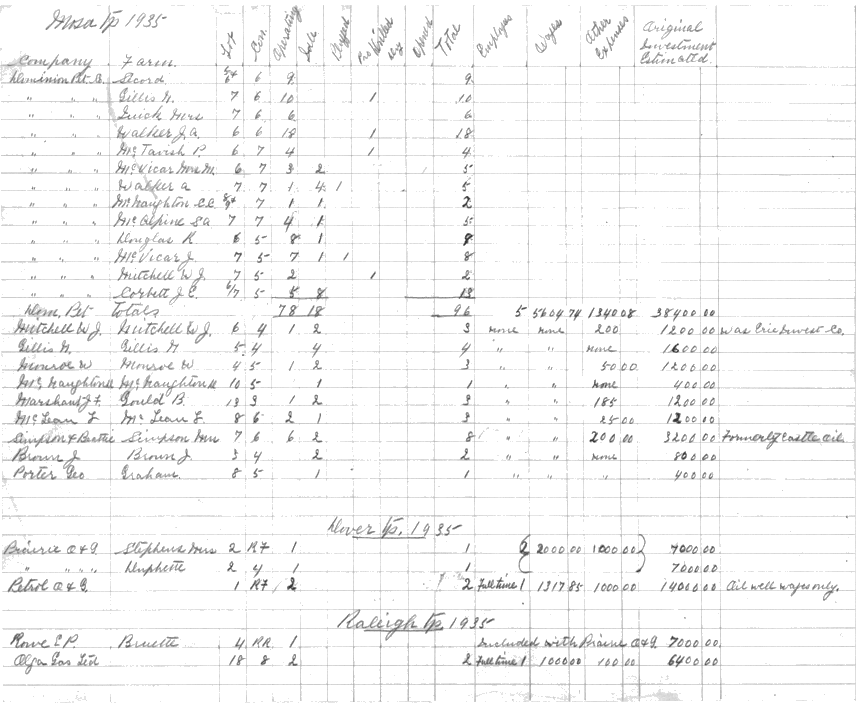 Mosa Tp 1935
Company Farm Lot Con. Operating Idle Drilled Abnd Total Employees Wages Other Expenses Original Investment Estimated.
Dominion Pet. C. Secord 6 9 9
" " " Gillis N. 7 6 10 1 10
" " " Quick Mrs 7 6 6 6
" " " Walker J. A. 6 6 18 1 18
" " " McTavish P. 6 7 4 1 4
" " " McVicar Mrs M. 6 7 3 2 5
" " " Walker A 7 7 1 4 1 5
" " " McNaughton C.C. 8/9 7 1 1 2
" " " McAlpine S A 7 7 4 1 5
" " " Douglas K 6 5 8 1 9
" " " McVicar J. 7 5 7 1 1 8
" " " Mitchell W J. 7 5 2 1 2
" " " Corbett J. C. 6/7 5 5 8 13
Dom. Pet Totals 78 18 96 5 5604 74 1340 08 38400 00
Mitchell W J. Mitchell W J. 6 4 1 2 3 none none 200 1200 00 was Erie Invest Co.
Gillis N. Gillis N 5 4 4 4 " " none 1600 00
Monroe W Monroe W 4 5 1 2 3 " " 50 00 1200 00
McNaughton McNaughton 10 5 1 1 " " none 400 00
Marshall J F Gould B 13 3 1 2 3 " " 185 1200 00
McLean F McLean F 8 6 2 1 3 " " 25 00 1200 00
Simpson & Beattie Simpson Mrs 7 6 6 2 8 " " 200 00 3200 00 Formerly Castle Oil
Brown J Brown J. 3 4 2 2 " " none 800 00
Porter Geo Graham. 8 5 1 1 " " " 400 00
Dover Tp. 1935
Prairie O & G Stephens Mrs 2 R7 1 1 2 2000 00 1000 00 7000 00
" " " " Duphette 2 4 1 1 7000 00
Petrol O & G. 1 R7 2 2 Full time 1 1317 85 1000 00 14000 00 Oil well wages only.
Raleigh Tp 1935
Rowe C P. Bruette 4 RR 1 Included with Prairie O & G 7000 00
Olga Gas Ltd 18 8 2 2 Full time 1 1000 00 100 00 6400 00